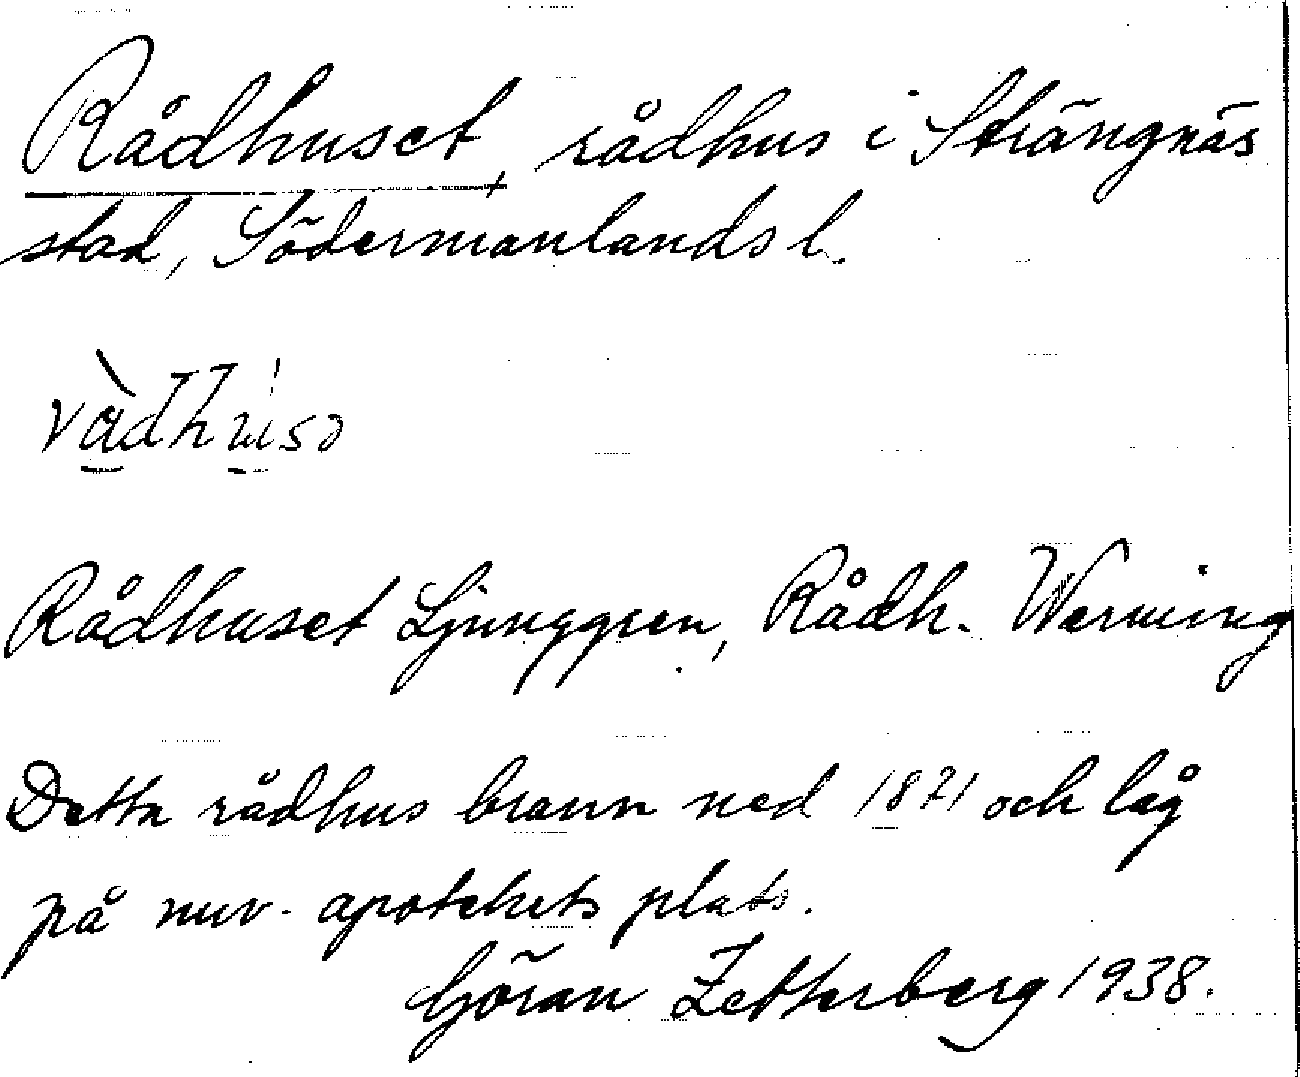 Rådhuset, rådhus i Strängnäs
stad, Södermanlands l.
Rådhuset Ljunggren, Rådh. Werming
Detta rådhus brann ned 1871 och låg
på nuv. apotekets plats.
Göran Zetterberg 1938.